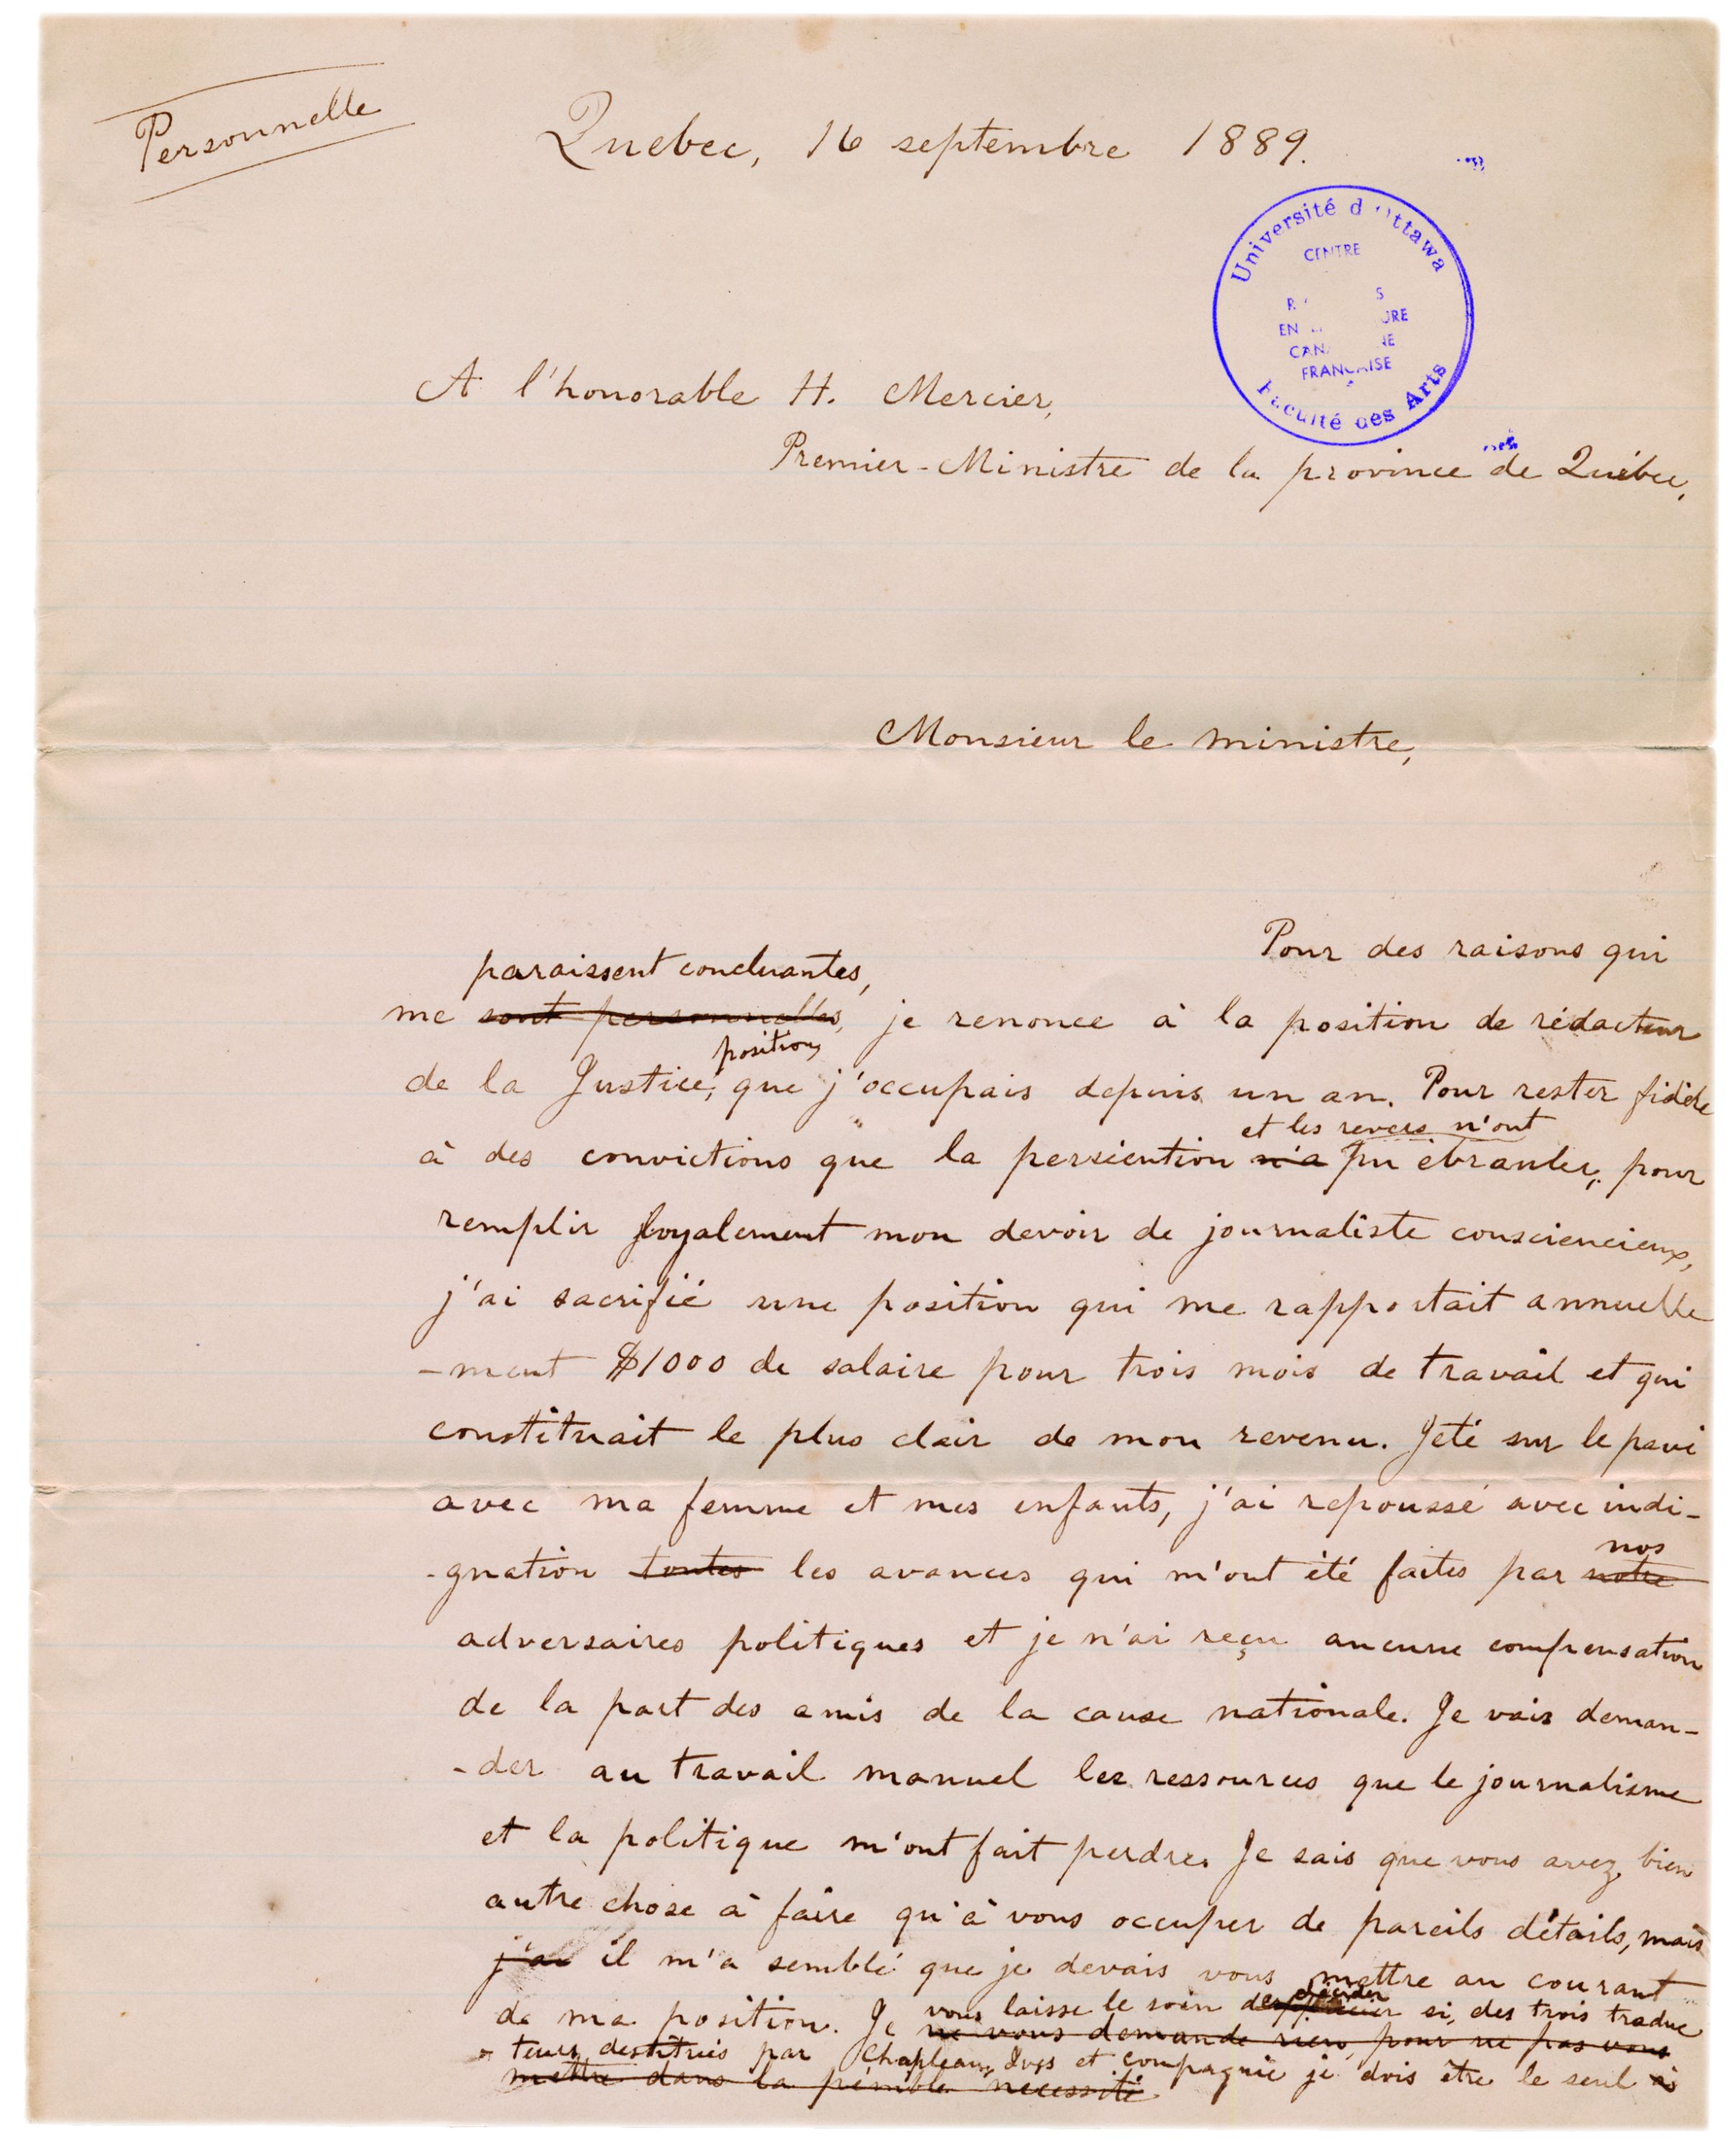 Personnelle
Quebec, 16 septembre 1889.
Université d'Ottawa
CENTRE
EN
FRANÇAISE
Faculté des Arts
A l'honorable H. Mercier,
Premier-Ministre de la province de Québec,
Monsieur le ministre,
Pour des raisons qui
paraissent concluantes,
me sont personnelles, je renonce à la position de rédacteur
position
de la Justice, que j'occupais depuis un an. Pour rester fidèle
et les revers n'ont
à des convictions que la persécution n'a pu ébranler, pour
remplir loyalement mon devoir de journaliste consciencieux,
j'ai sacrifié une position qui me rapportait annuelle
-ment $1000 de salaire pour trois mois de travail et qui
constituait le plus clair de mon revenu. Jeté sur le pavé
avec ma femme et mes enfants, j'ai repoussé avec indi-
nos
-gnation toutes les avances qui m'ont été faites par notre
adversaires politiques et je n'ai reçu aucune compensation
de la part des amis de la cause nationale. Je vais deman-
-der au travail manuel les ressources que le journalisme
et la politique m'ont fait perdre. Je sais que vous avez bien
autre chose à faire qu'à vous occuper de pareils détails, mais
j'ai il m'a semblé que je devais vous mettre au courant
décider
vous laisse le soin de si, des trois traduc
de ma position. Je ne vous demande rien, pour ne pas vous
-teurs destitués par Chapleau, Ives et compagnie je dois être le seul
mettre dans la pénible nécessité